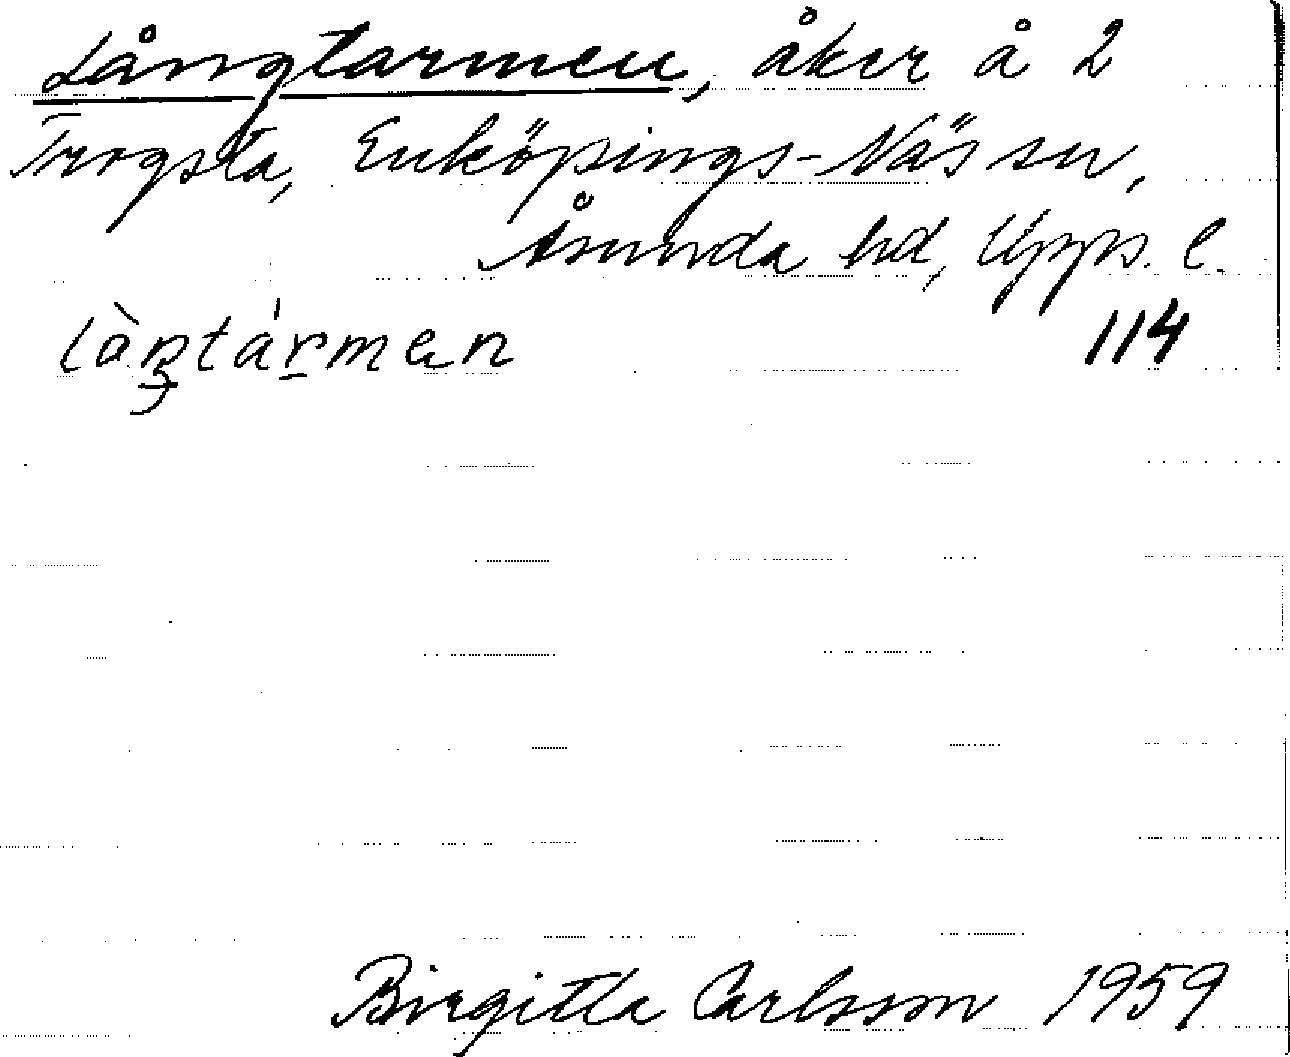 Långtarmen, åker å 2
Trogsta, Enköpings-Näs sn,
Åsunda hd, Upps. l.
lòŋtármen 114
Birgitta Carlsson 1959